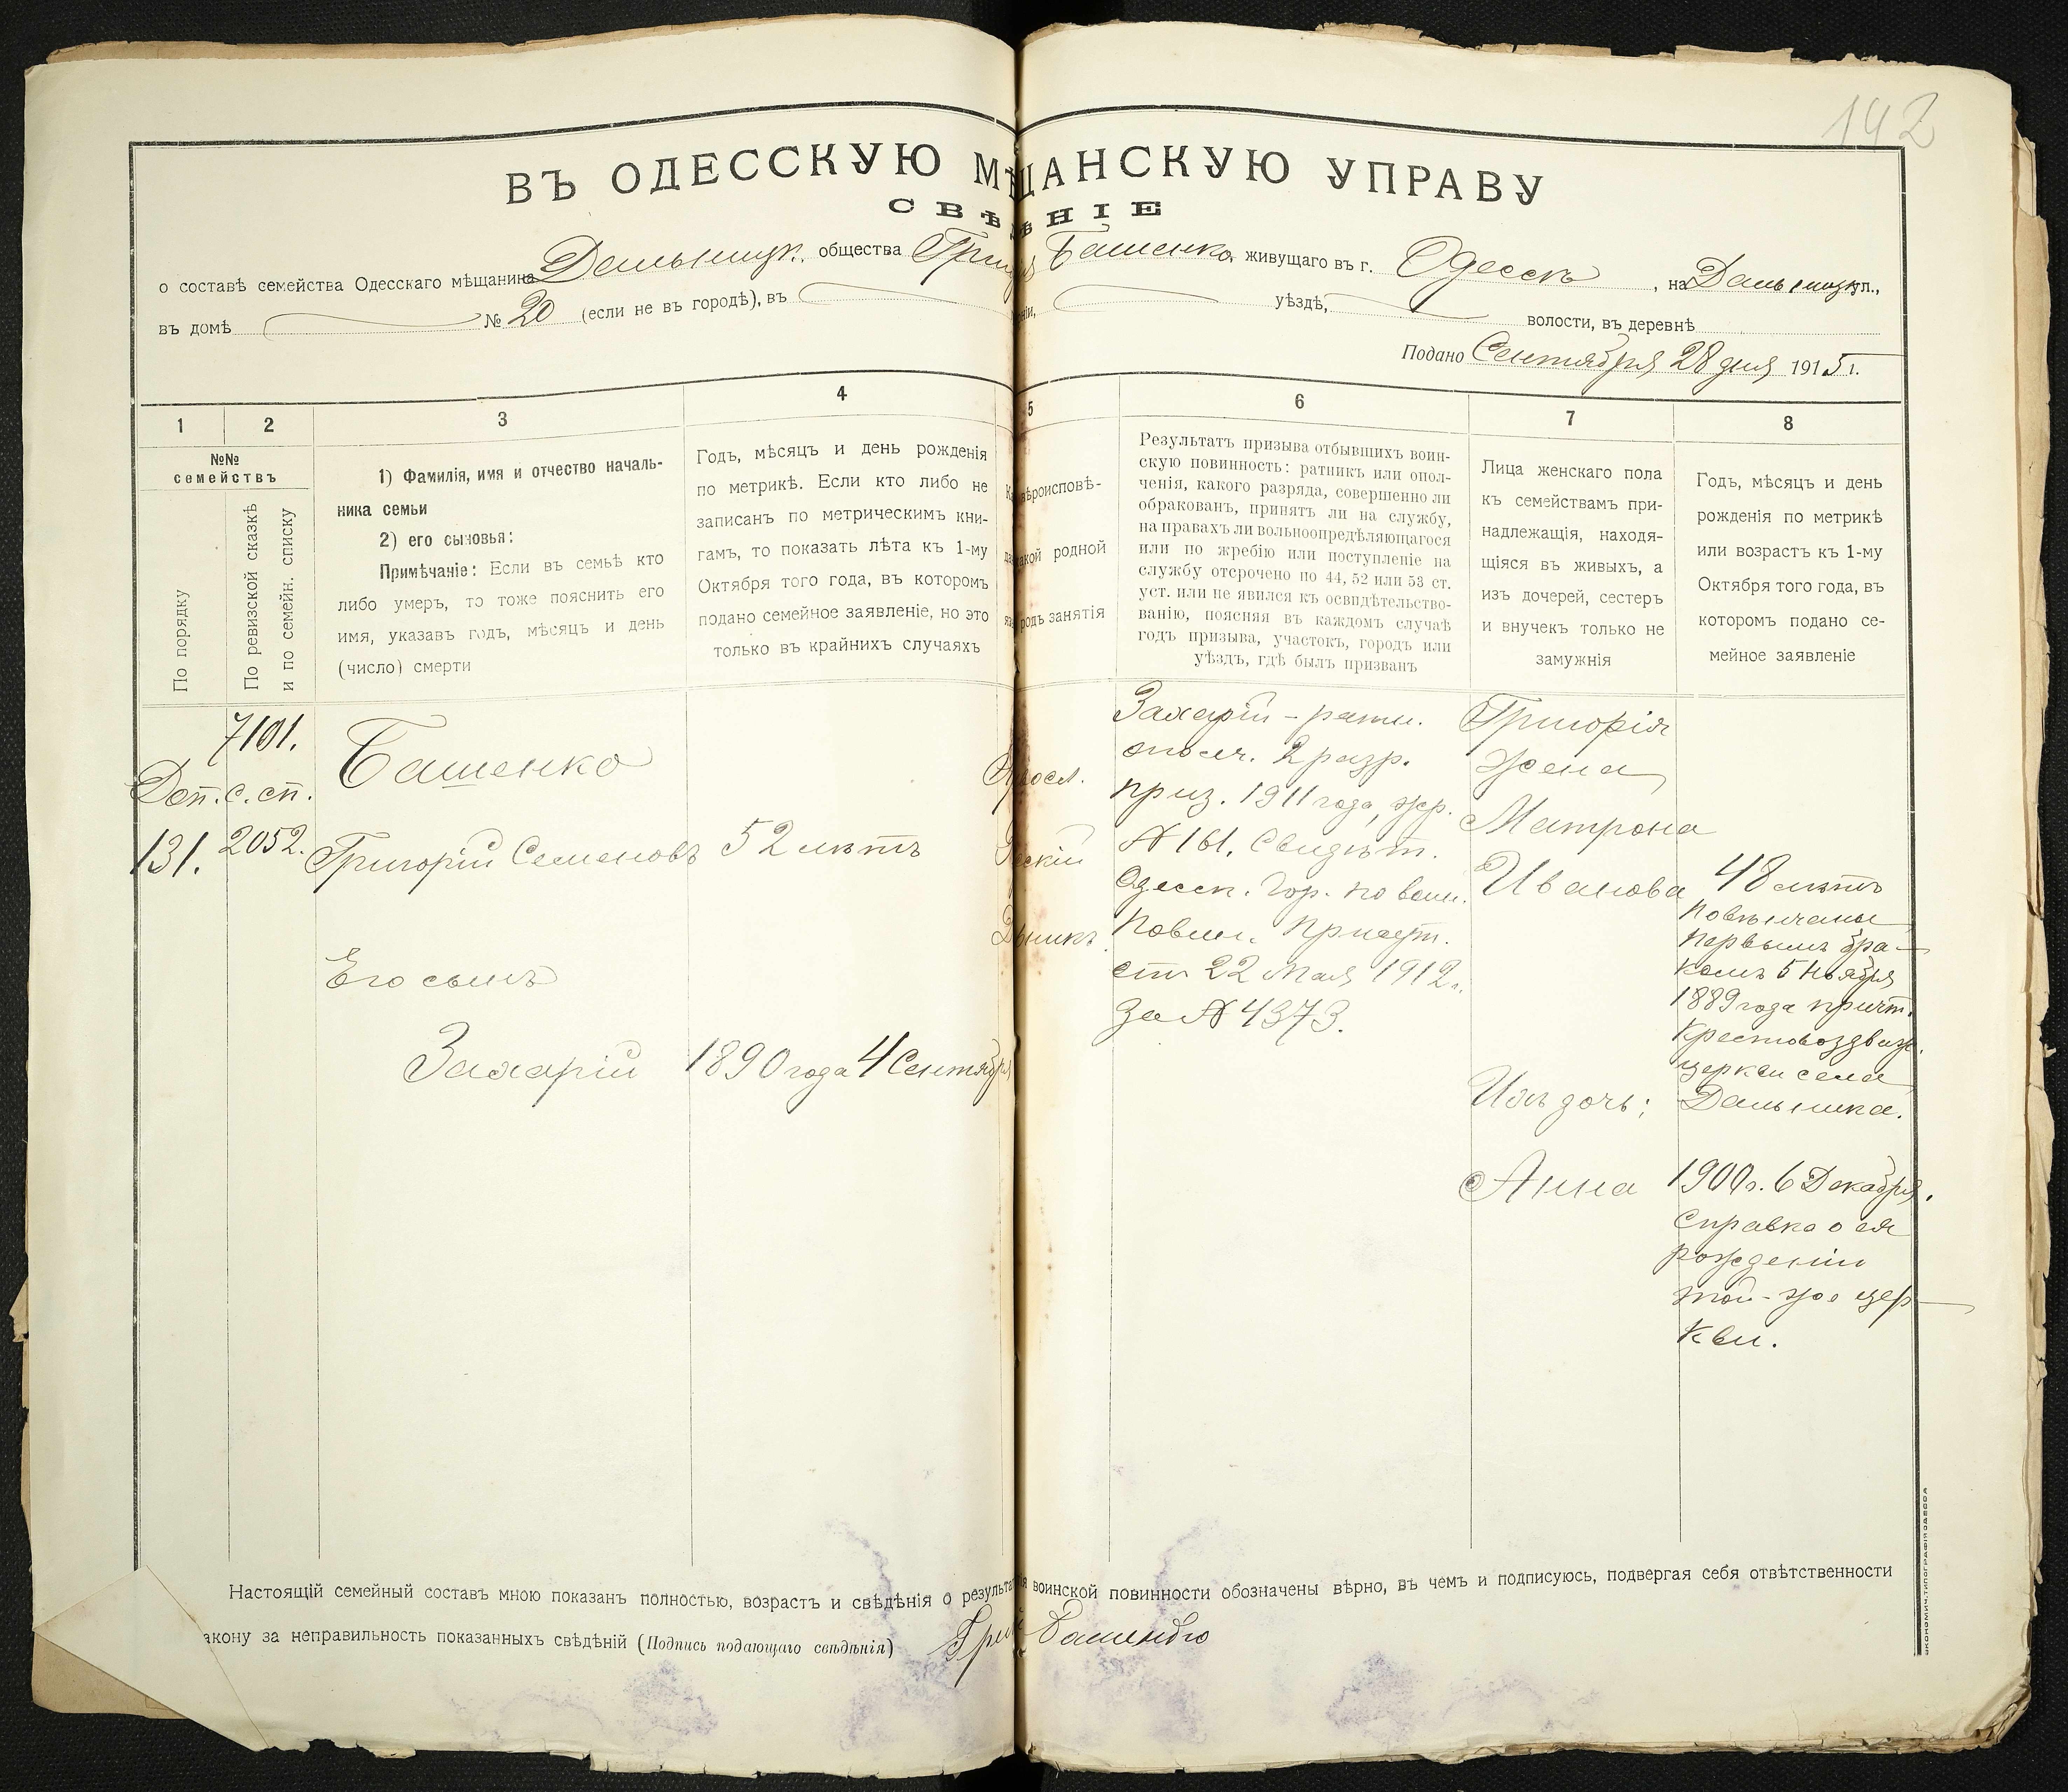 142
ВЪ ОДЕССКУЮ МѢЩАНСКУЮ УПРАВУ
СВѢДѢНІЕ
о составѣ семейства Одесскаго мѣщанина Дальницк. общества Григорія Башенко, живущаго въ г. Одессѣ, на Дальницк. ул.,
въ домѣ № 20 (если не въ городѣ), въ уѣздѣ, волости, въ деревнѣ
Подано Сентября 28 дня 1915 г.
1 2 3 4 5 6 7 8
№№ семействъ
По порядку
По ревизской сказкѣ
и по семейн. списку
1) Фамилія, имя и отчество началь-
ника семьи
2) его сыновья:
Примѣчаніе: Если въ семьѣ кто
либо умеръ, то тоже пояснить его
имя, указавъ годъ, мѣсяцъ и день
(число) смерти
Годъ, мѣсяцъ и день рожденія
по метрикѣ. Если кто либо не
записанъ по метрическимъ кни-
гамъ, то показать лѣта къ 1-му
Октября того года, въ которомъ
подано семейное заявленіе, но это
только въ крайнихъ случаяхъ
вѣроисповѣ-
какой родной
родъ занятія
Результатъ призыва отбывшихъ воин-
скую повинность: ратникъ или опол-
ченія, какого разряда, совершенно ли
обракованъ, принятъ ли на службу,
на правахъ ли вольноопредѣляющагося
или по жребію или поступленіе на
службу отсрочено по 44, 52 или 53 ст.
уст. или не явился къ освидѣтельство-
ванію, поясняя въ каждомъ случаѣ
годъ призыва, участокъ, городъ или
уѣздъ, гдѣ былъ призванъ
Лица женскаго пола
къ семействамъ при-
надлежащія, находя-
щіяся въ живыхъ, а
изъ дочерей, сестеръ
и внучекъ только не
замужнія
Годъ, мѣсяцъ и день
рожденія по метрикѣ
или возрастъ къ 1-му
Октября того года, въ
которомъ подано се-
мейное заявленіе
7101.
Доп. с. сп.
131. 2052.
Башенко
Григорій Семеновъ 52 лѣтъ
Его сынъ
Захарій 1890 года 4 Сентября
Захарій - ратн.
ополч. 2 разр.
приз. 1911 года, жр.
№ 161. Свидѣт.
Одесск. Гор. по воин.
повин. присут.
ст 22 Мая 1912 г.
за № 4373.
Григорія
жена
Матрона
Иванова
48 лѣтъ
повѣнчаны
первымъ бра-
комъ 5 Ноября
1889 года причт.
Крестовоздвиж.
церкви села
Дальника.
Ихъ дочь:
Анна
1900 г. 6 Декабря.
Справка о ея
рожденіи
той-же цер-
кви.
Настоящій семейный составъ мною показанъ полностью, возрастъ и свѣдѣнія о результатѣ воинской повинности обозначены вѣрно, въ чемъ и подписуюсь, подвергая себя отвѣтственности
закону за неправильность показанныхъ свѣдѣній (Подпись подающаго свѣдѣнія) Башенко